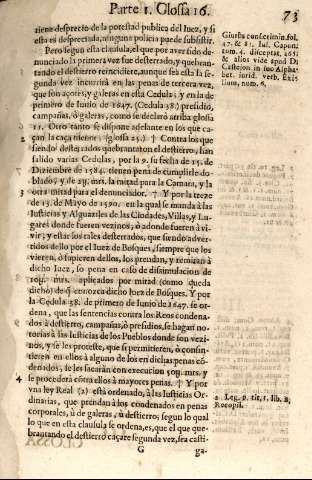 Parte 1. Glossa 16.
73
tiene desprecio de la potestad publica del Iuez, y si
esta es despreciada, ninguna policia puede subsistir.
Pero segun esta clausula, el que por aver sido de-
nunciado la primera vez fue desterrado, y quebran-
tando el destierro reincidiere, aunque sea esta la se-
gunda vez incurrirà en las penas de tercera vez,
que son açores, y galeras en esta Cedula; y en la de
primero de Iunio de 1647. (Cedula 38.) presidio,
campañas, ò galeras, como se declarò arriba glossa
11. Otro tanto se dispone adelante en los que ca-
çan la caça menor (glossa 25.) † Contra los que
siendo desterrados quebrantaron el destierro, han
salido varias Cedulas, por la 9. su fecha de 15. de
Diziembre de 1584. tienen pena de cumplirle do-
blado, y de 23. mrs. la mitad para la Camara, y la
otra mitad para el denunciador. † Y por la treze
de 13. de Mayo de 1590. en la qual se manda à las
Iusticias y Alguaziles de las Ciudades, Villas, y Lu-
garez donde fueren vezinos, ò adonde fueren à vi-
vir; y estar los tales desterrados, que siendo adver-
tidos dello por el Iuez de Bosques, siempre que los
vieren, ò supieren dellos, los prendan, y remitan à
dicho Iuez, so pena en caso de dissimulacion de
mrs. aplicados por mitad (como queda
dicho) de que conozca dicho Iuez de Bosques. Y por
la Cedula 38. de primero de Iunio de 1647. se or-
dena, que las sentencias contra los Reos condena-
dos à destierro, campañas, ò presidios, se hagan no-
torias à las Iusticias de los Pueblos donde son vezi-
nos, y se les proteste, que si permitieren, ò consin-
tieren en ellos à alguno de los en dichas penas cò-
denados, se les sacaràn con execucion 50U. mrs. y
4 se procederà còtra ellos à mayores penas. † Y por
vna ley Real (2) està ordenado, à las Iusticias Or-
dinarias, que prendan à los condenados en penas
corporales, ù de galeras, ù destierro; segun lo qual
lo que en esta clausula se ordena, es, que el que que-
brantando el destierro caçare segunda vez, sea casti-
G
ga-
Giurba conf. crimin. fol.
47. & 81. Iul. Capon.
tom. 4. disceptat. 265.
& alios vide apud D.
Castejon in suo Alpha-
bet. iurid. verb. Exi-
lium, num. 6.
2 Leg. 9. tit. 1. lib. 8.
Recopil.